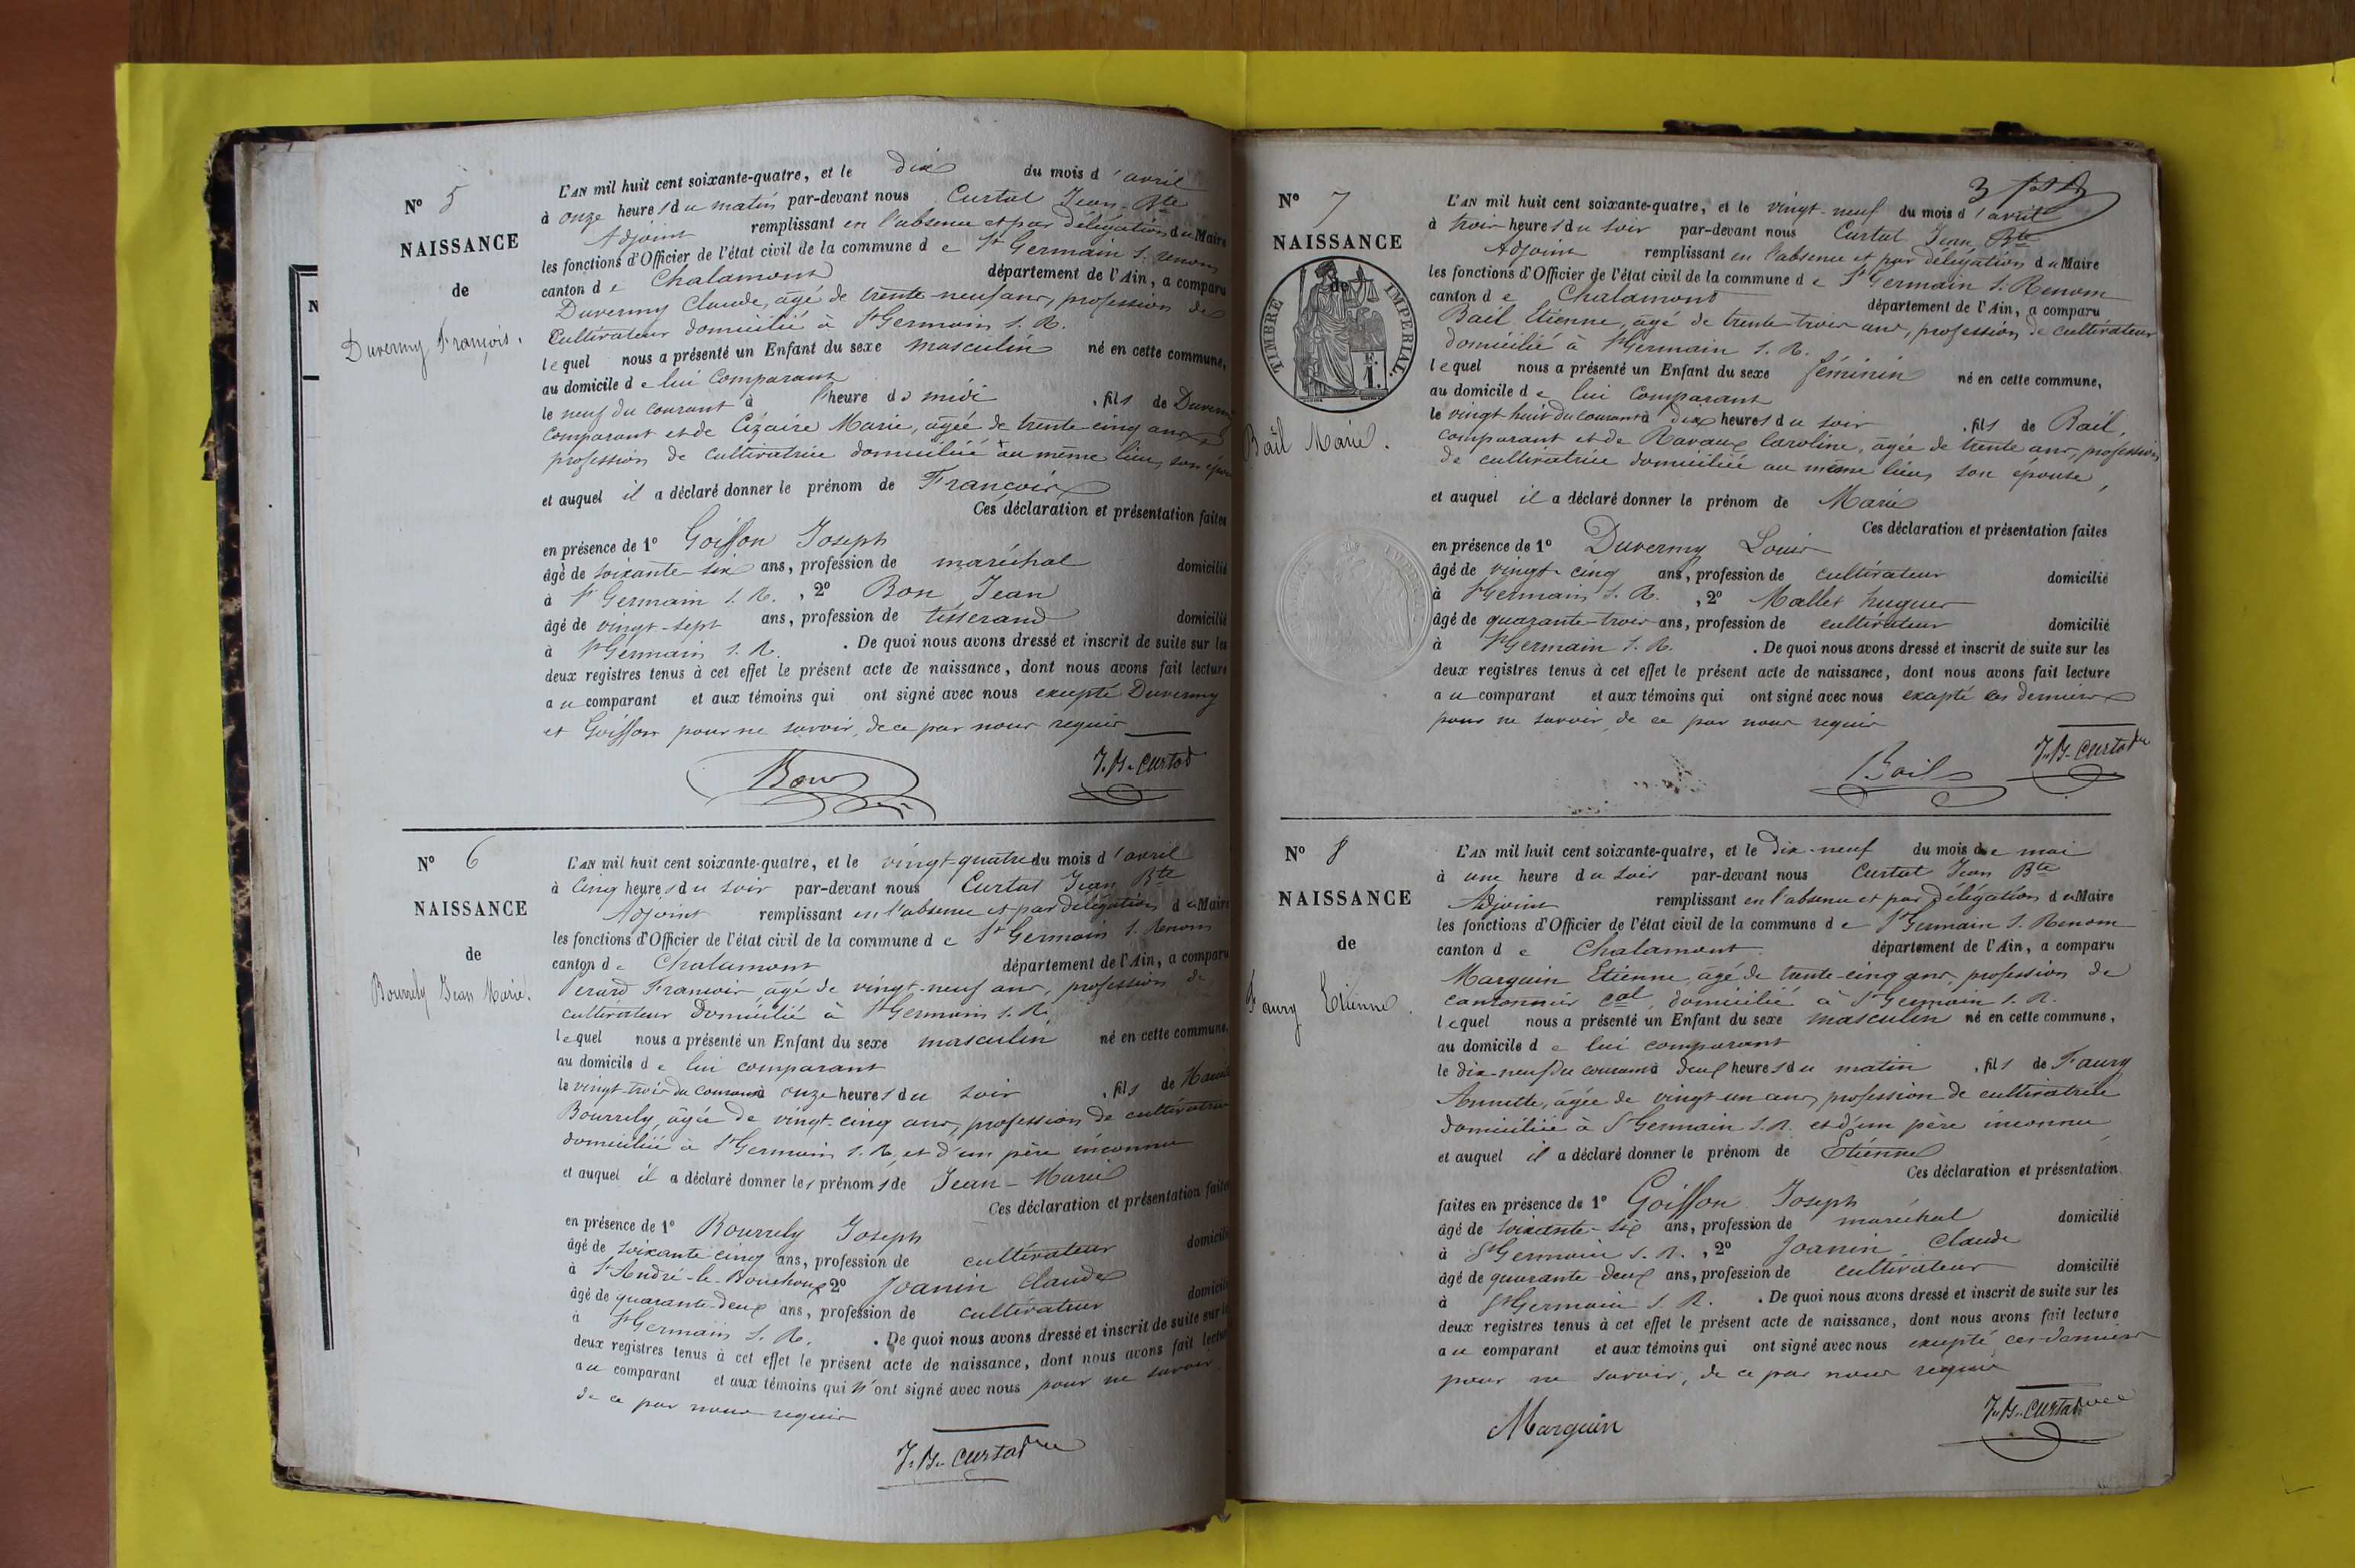 N° 5
NAISSANCE
de
Duvermy François.
L'AN mil huit cent soixante-quatre, et le dix du mois d'avril
à onze heures du matin par-devant nous Curtat Jean-Bte
Adjoint remplissant en l'absence et par délégation du Maire
les fonctions d'Officier de l'état civil de la commune de St Germain s. Renom
canton de Chalamont département de l'Ain, a comparu
Duvermy Claude, âgé de trente-neuf ans, profession de
Cultivateur domicilié à St Germain s. R.
lequel nous a présenté un Enfant du sexe masculin né en cette commune,
au domicile de lui Comparant
le neuf du courant à l'heure de midi, fils de Duvermy
Comparant et de Cizaire Marie, âgée de trente-cinq ans
profession de cultivatrice domiciliée au même lieu, son épouse
et auquel il a déclaré donner le prénom de François
Ces déclaration et présentation faites
en présence de 1° Goiffon Joseph
âgé de soixante-six ans, profession de maréchal domicilié
à St Germain s. R., 2° Bon Jean
âgé de vingt-sept ans, profession de tisserand domicilié
à St Germain s. R. . De quoi nous avons dressé et inscrit de suite sur les
deux registres tenus à cet effet le présent acte de naissance, dont nous avons fait lecture
au comparant et aux témoins qui ont signé avec nous excepté Duvermy
et Goiffon pour ne savoir, de ce par nous requis
Bon J.B. Curtat
N° 6
NAISSANCE
de
Bourrely Jean Marie.
L'AN mil huit cent soixante-quatre, et le vingt-quatre du mois d'avril
à Cinq heures du soir par-devant nous Curtat Jean Bte
Adjoint remplissant en l'absence et par délégation du Maire
les fonctions d'Officier de l'état civil de la commune de St Germain s. Renom
canton de Chalamont département de l'Ain, a comparu
Perard François, âgé de vingt-neuf ans, profession de
cultivateur domicilié à St Germain s. R.
lequel nous a présenté un Enfant du sexe masculin né en cette commune,
au domicile de lui comparant
le vingt-trois du courant à onze heures du soir, fils de Marie
Bourrely, âgée de vingt-cinq ans, profession de cultivatrice
domiciliée à St Germain s. R., et d'un père inconnu
et auquel il a déclaré donner les prénoms de Jean-Marie
Ces déclaration et présentation faites
en présence de 1° Bourrely Joseph
âgé de soixante cinq ans, profession de cultivateur domicilié
à St André-le-Bouchoux 2° Joanin Claude
âgé de quarante-deux ans, profession de cultivateur domicilié
à St Germain s. R. . De quoi nous avons dressé et inscrit de suite sur les
deux registres tenus à cet effet le présent acte de naissance, dont nous avons fait lecture
au comparant et aux témoins qui n'ont signé avec nous pour ne savoir
de ce par nous requis
J.B. Curtat
3
N° 7
NAISSANCE
de
TIMBRE IMPERIAL
Bail Marie.
L'AN mil huit cent soixante-quatre, et le vingt-neuf du mois d'avril
à trois heures du soir par-devant nous Curtat Jean Bte
Adjoint remplissant en l'absence et par délégation du Maire
les fonctions d'Officier de l'état civil de la commune de St Germain s. Renom
canton de Chalamont département de l'Ain, a comparu
Bail Etienne, âgé de trente-trois ans, profession de cultivateur
domicilié à St Germain s. R.
lequel nous a présenté un Enfant du sexe féminin né en cette commune,
au domicile de lui comparant
le vingt huit du courant à dix heures du soir, fils de Bail,
comparant et de Ravaux Caroline, âgée de trente ans, profession
de cultivatrice domiciliée au même lieu, son épouse,
et auquel il a déclaré donner le prénom de Marie
Ces déclaration et présentation faites
en présence de 1° Duvermy Louis
âgé de vingt-cinq ans, profession de cultivateur domicilié
à St Germain s. R. , 2° Mallet hugues
âgé de quarante-trois ans, profession de cultivateur domicilié
à St Germain s. R. . De quoi nous avons dressé et inscrit de suite sur les
deux registres tenus à cet effet le présent acte de naissance, dont nous avons fait lecture
au comparant et aux témoins qui ont signé avec nous excepté ces derniers
pour ne savoir, de ce par nous requis
Bail J.B. Curtat
N° 8
NAISSANCE
de
Faury Etienne.
L'AN mil huit cent soixante-quatre, et le dix-neuf du mois de mai
à une heure du soir par-devant nous Curtat Jean Bte
Adjoint remplissant en l'absence et par délégation du Maire
les fonctions d'Officier de l'état civil de la commune de St Germain s. Renom
canton de Chalamont département de l'Ain, a comparu
Marguin Etienne, âgé de trente-cinq ans, profession de
cantonnier cal, domicilié à St Germain s. R.
lequel nous a présenté un Enfant du sexe masculin né en cette commune,
au domicile de lui comparant
le dix-neuf du courant à deux heures du matin, fils de Faury
Annette, âgée de vingt un ans, profession de cultivatrice
domiciliée à St Germain s. R. et d'un père inconnu
et auquel il a déclaré donner le prénom de Etienne
Ces déclaration et présentation
faites en présence de 1° Goiffon Joseph
âgé de soixante-six ans, profession de maréchal domicilié
à St Germain s. R. , 2° Joanin Claude
âgé de quarante-deux ans, profession de cultivateur domicilié
à St Germain s. R. . De quoi nous avons dressé et inscrit de suite sur les
deux registres tenus à cet effet le présent acte de naissance, dont nous avons fait lecture
au comparant et aux témoins qui ont signé avec nous excepté ces derniers
pour ne savoir, de ce par nous requis
Marguin J.B. Curtat